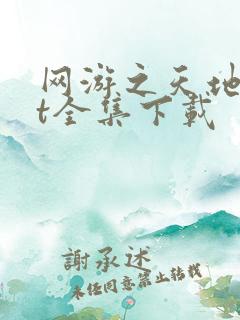 网游之天地
t全集下载
謝承述
未经同意禁止转载